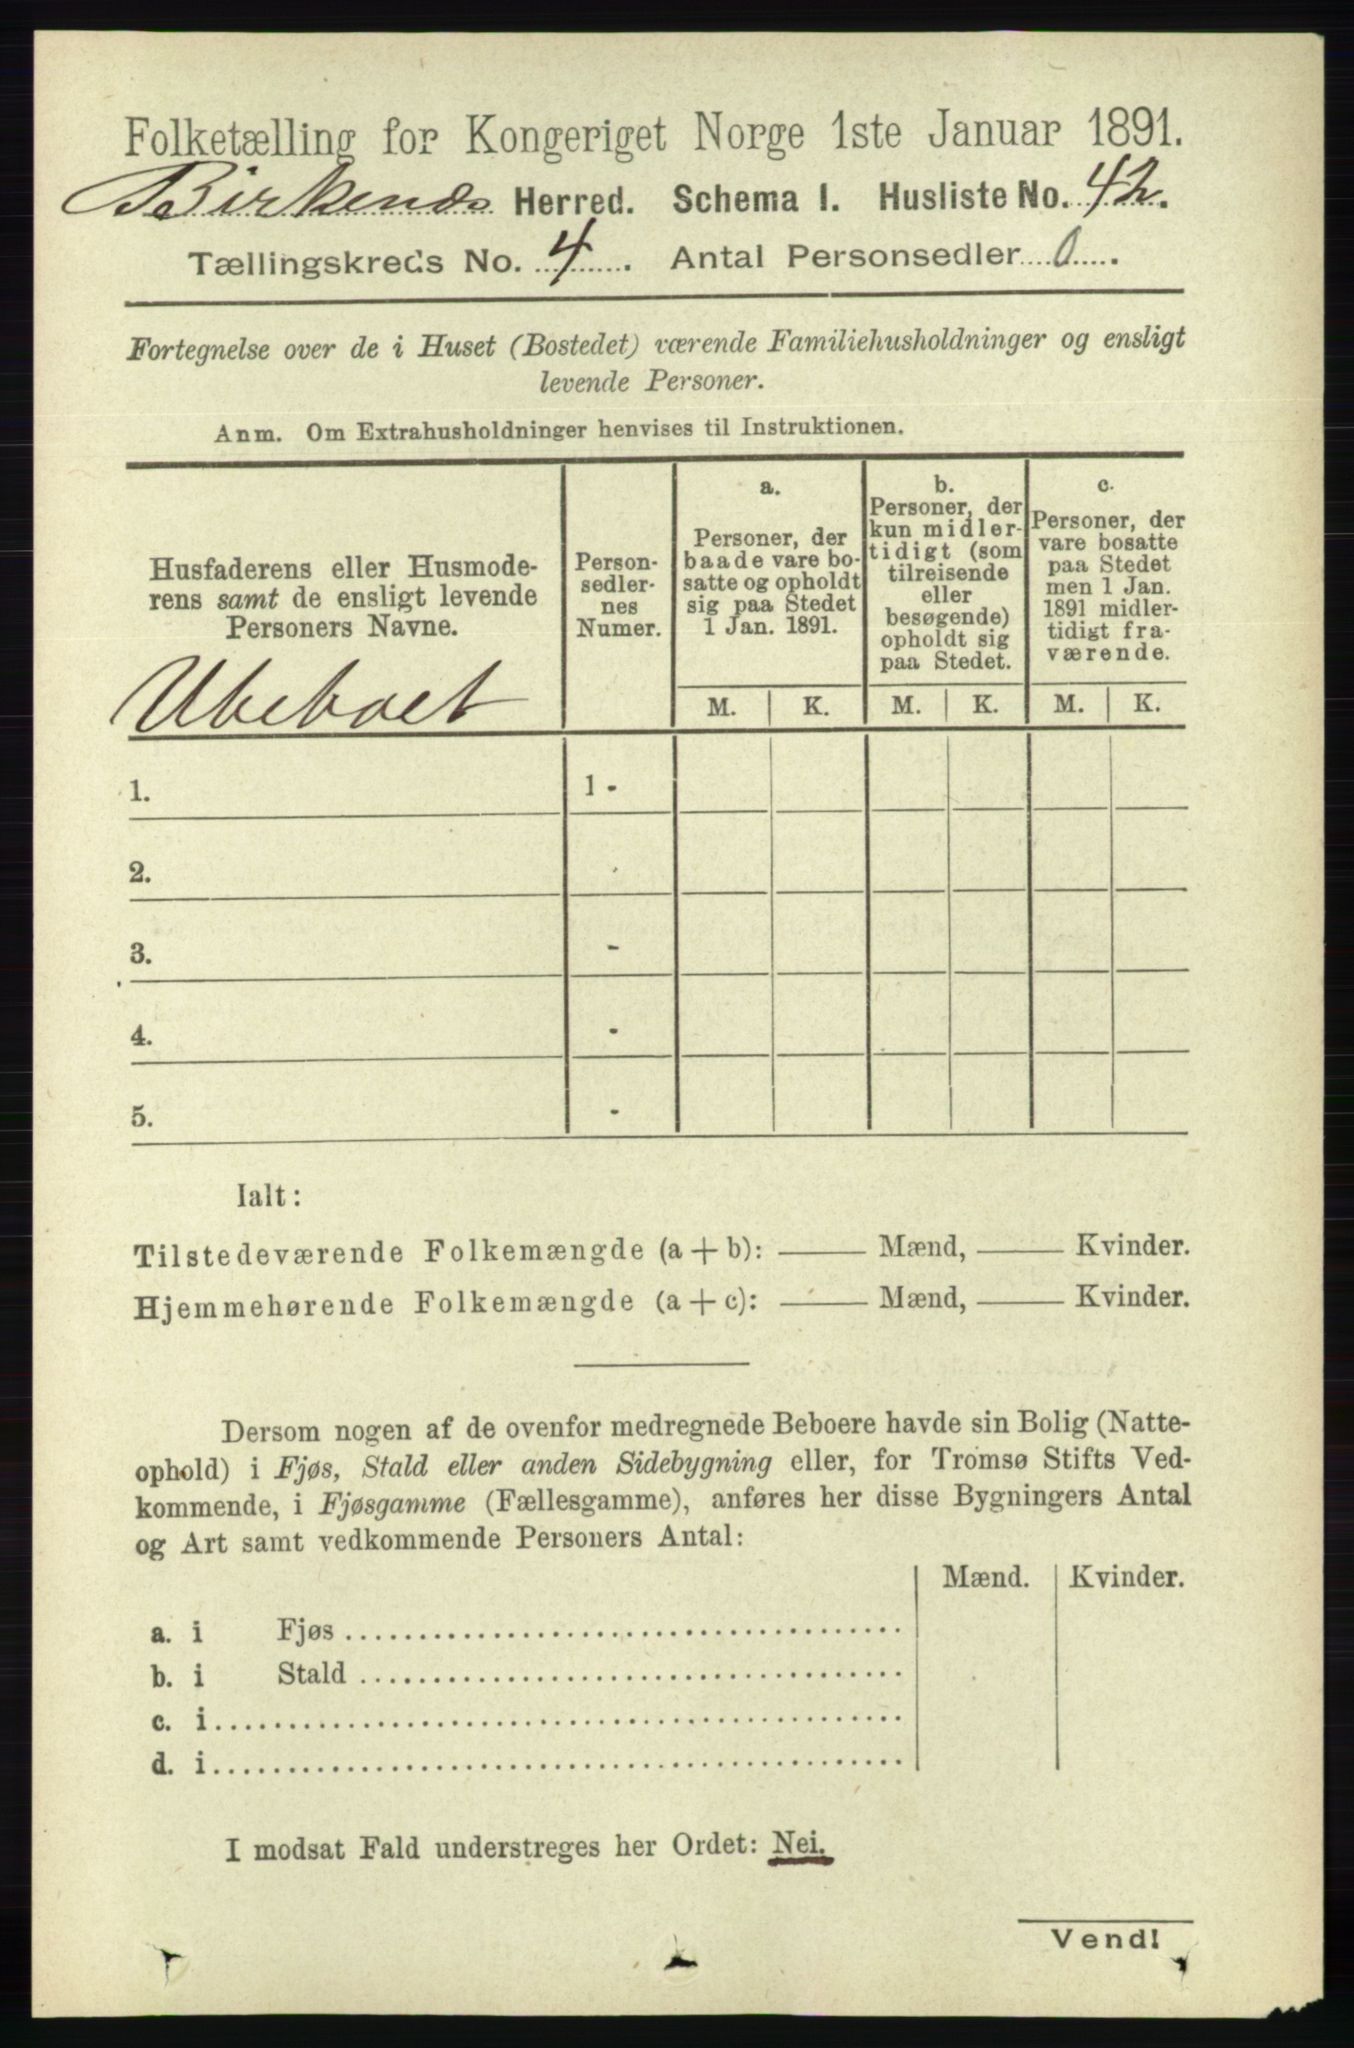 Folketælling for Kongeriget Norge 1ste Januar 1891.
Birkenes Herred. Schema I. Husliste No. 42.
Tællingskreds No. 4. Antal Personsedler 0.
Fortegnelse over de i Huset (Bostedet) værende Familiehusholdninger og ensligt
levende Personer.
Anm. Om Extrahusholdninger henvises til Instruktionen.
Husfaderens eller Husmode-
rens samt de ensligt levende
Personers Navne.
Person-
sedler-
nes
Numer.
a.
Personer, der
baade vare bo-
satte og opholdt
sig paa Stedet
1 Jan. 1891.
b.
Personer, der
kun midler-
tidigt (som
tilreisende
eller
besøgende)
opholdt sig
paa Stedet.
c.
Personer, der
vare bosatte
paa Stedet
men 1 Jan.
1891 midler-
tidigt fra-
værende.
M. K. M. K. M. K.
Ubeboet
1. 1 -
2.
3. -
4. -
5. -
Ialt:
Tilstedeværende Folkemængde (a + b): —— Mænd, —— Kvinder.
Hjemmehørende Folkemængde (a + c): —— Mænd, —— Kvinder.
Dersom nogen af de ovenfor medregnede Beboere havde sin Bolig (Natte-
ophold) i Fjøs, Stald eller anden Sidebygning eller, for Tromsø Stifts Ved-
kommende, i Fjøsgamme (Fællesgamme), anføres her disse Bygningers Antal
og Art samt vedkommende Personers Antal:
Mænd. Kvinder.
a. i Fjøs
b. i Stald
c. i
d. i
I modsat Fald understreges her Ordet: Nei.
Vend!